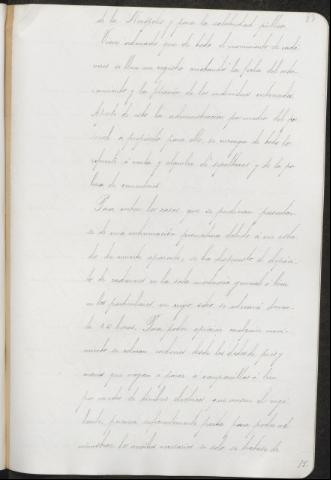 de la Necrópolis y para la salubridad pública.
Viene ordenado que de todo el movimiento de cadá-
veres se lleve un registro anotando la fecha del ente-
rramiento y la filiación de los individuos enterrados.
Aparte de esto la administración por medio del per-
sonal a propósito para ello, se encarga de todo lo
referente á venta y alquiler de sepulturas y de la po-
licía de
Para evitar los casos que se pudieran presentar
se de una inhumación prematura debido á un esta-
do de muerte aparente, se ha dispuesto el depósi-
to de cadáveres en la sala mortuoria general o bien
en las particulares, en cuyo sitio se
24 horas. Para poder apreciar cualquier movi-
miento se colocan cordones desde los dedos de pies y
manos que vayan á parar á campanillas ó bien
por medio de timbres eléctricos, que avisen al vigi-
lante, persona suficientemente para poder ad-
ministrar los auxilios necesarios no solo se trata de